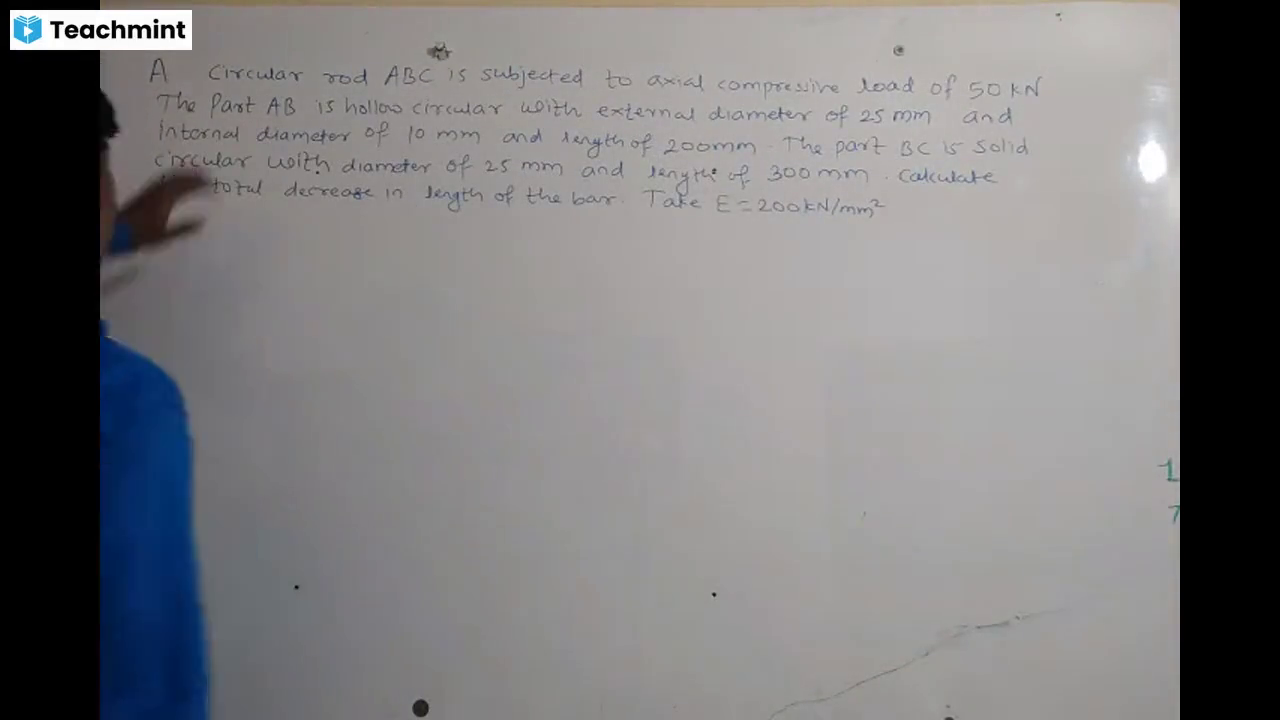 Teachmint
A Circular rod ABC is subjected to axial compressive load of 50 kN
The Part AB is hollow circular with external diameter of 25 mm and
internal diameter of 10 mm and length of 200mm. The part BC is solid
circular with diameter of 25 mm and length of 300 mm. Calculate
total decrease in length of the bar. Take E = 200kN/mm²